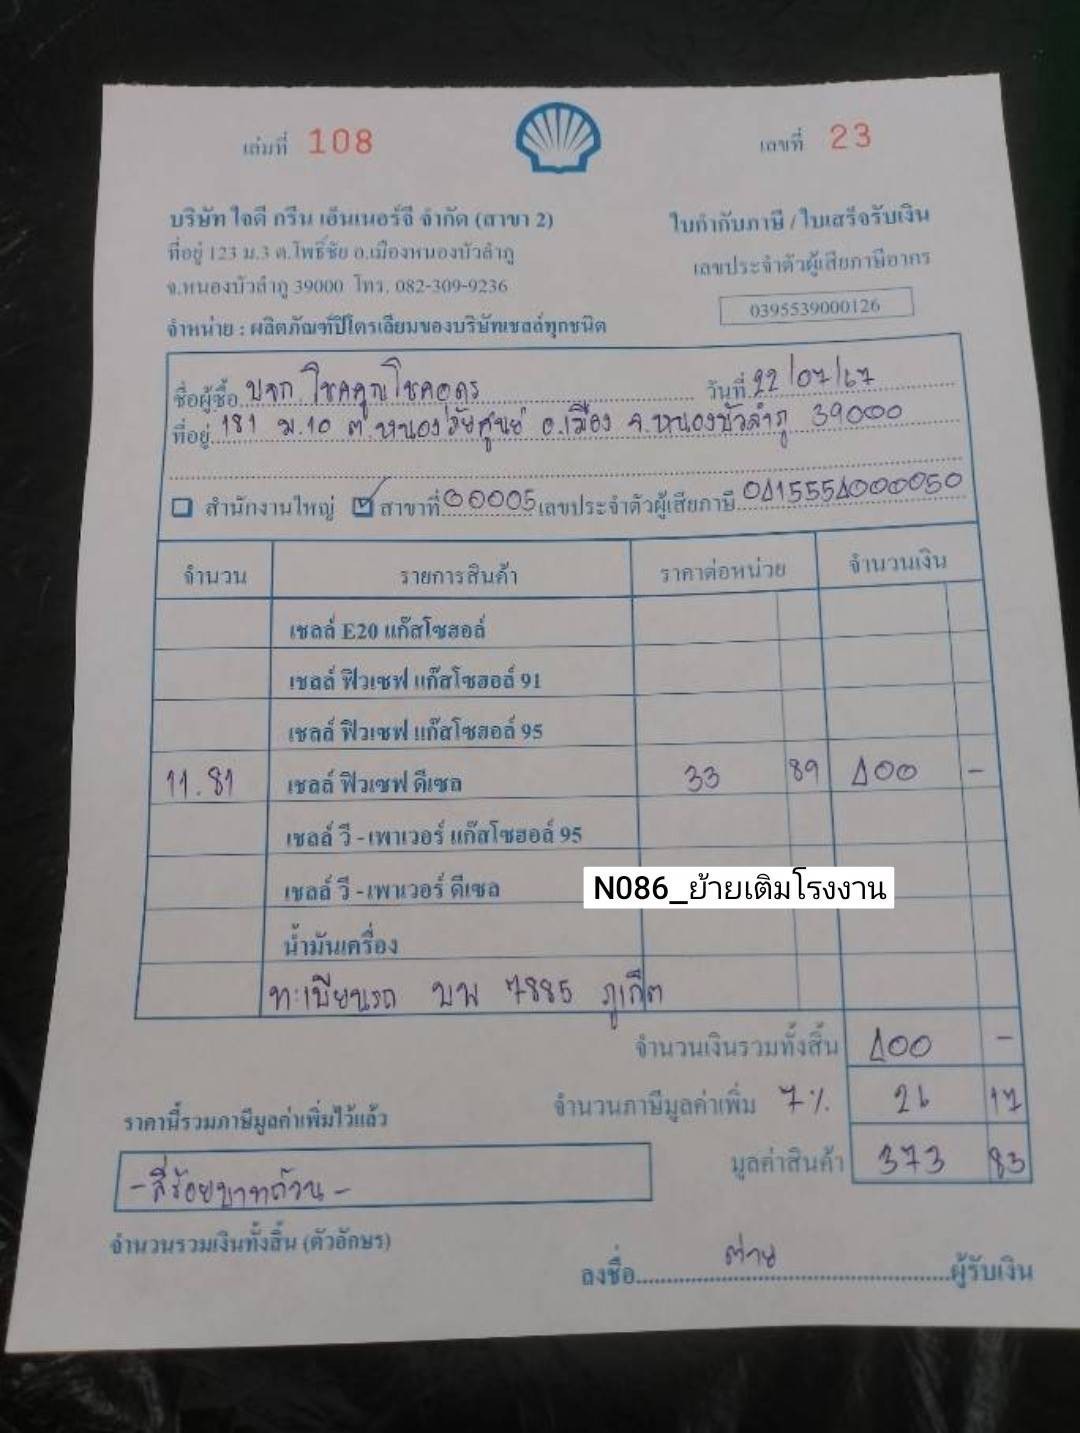 เล่มที่ 108
เลขที่ 23
บริษัท ใจดี กรีน เอ็นเนอร์จี จำกัด (สาขา 2)
ใบกำกับภาษี / ใบเสร็จรับเงิน
ที่อยู่ 123 ม.3 ต.โพธิ์ชัย อ.เมืองหนองบัวลำภู
เลขประจำตัวผู้เสียภาษีอากร
จ.หนองบัวลำภู 39000 โทร. 082-309-9236
0395539000126
จำหน่าย : ผลิตภัณฑ์ปิโตรเลียมของบริษัทเชลล์ทุกชนิด
ชื่อผู้ซื้อ บจก. โชคคูณโชคอุดร วันที่ 22/07/67
ที่อยู่ 181 ม.10 ต.หนองภัยศูนย์ อ.เมือง จ.หนองบัวลำภู 39000
สำนักงานใหญ่ สาขาที่ 00005 เลขประจำตัวผู้เสียภาษี 0415554000050
จำนวน รายการสินค้า ราคาต่อหน่วย จำนวนเงิน
เชลล์ E20 แก๊สโซฮอล์
เชลล์ ฟิวเซฟ แก๊สโซฮอล์ 91
เชลล์ ฟิวเซฟ แก๊สโซฮอล์ 95
11.81 เชลล์ ฟิวเซฟ ดีเซล 33 89 400 -
เชลล์ วี - เพาเวอร์ แก๊สโซฮอล์ 95
เชลล์ วี - เพาเวอร์ ดีเซล
N086_ย้ายเติมโรงงาน
น้ำมันเครื่อง
ทะเบียนรถ บพ 7885 ภูเก็ต
จำนวนเงินรวมทั้งสิ้น 400 -
จำนวนภาษีมูลค่าเพิ่ม 7% 26 17
ราคานี้รวมภาษีมูลค่าเพิ่มไว้แล้ว
มูลค่าสินค้า 373 83
- สี่ร้อยบาทถ้วน -
จำนวนรวมเงินทั้งสิ้น (ตัวอักษร)
ลงชื่อ ต่าย ผู้รับเงิน